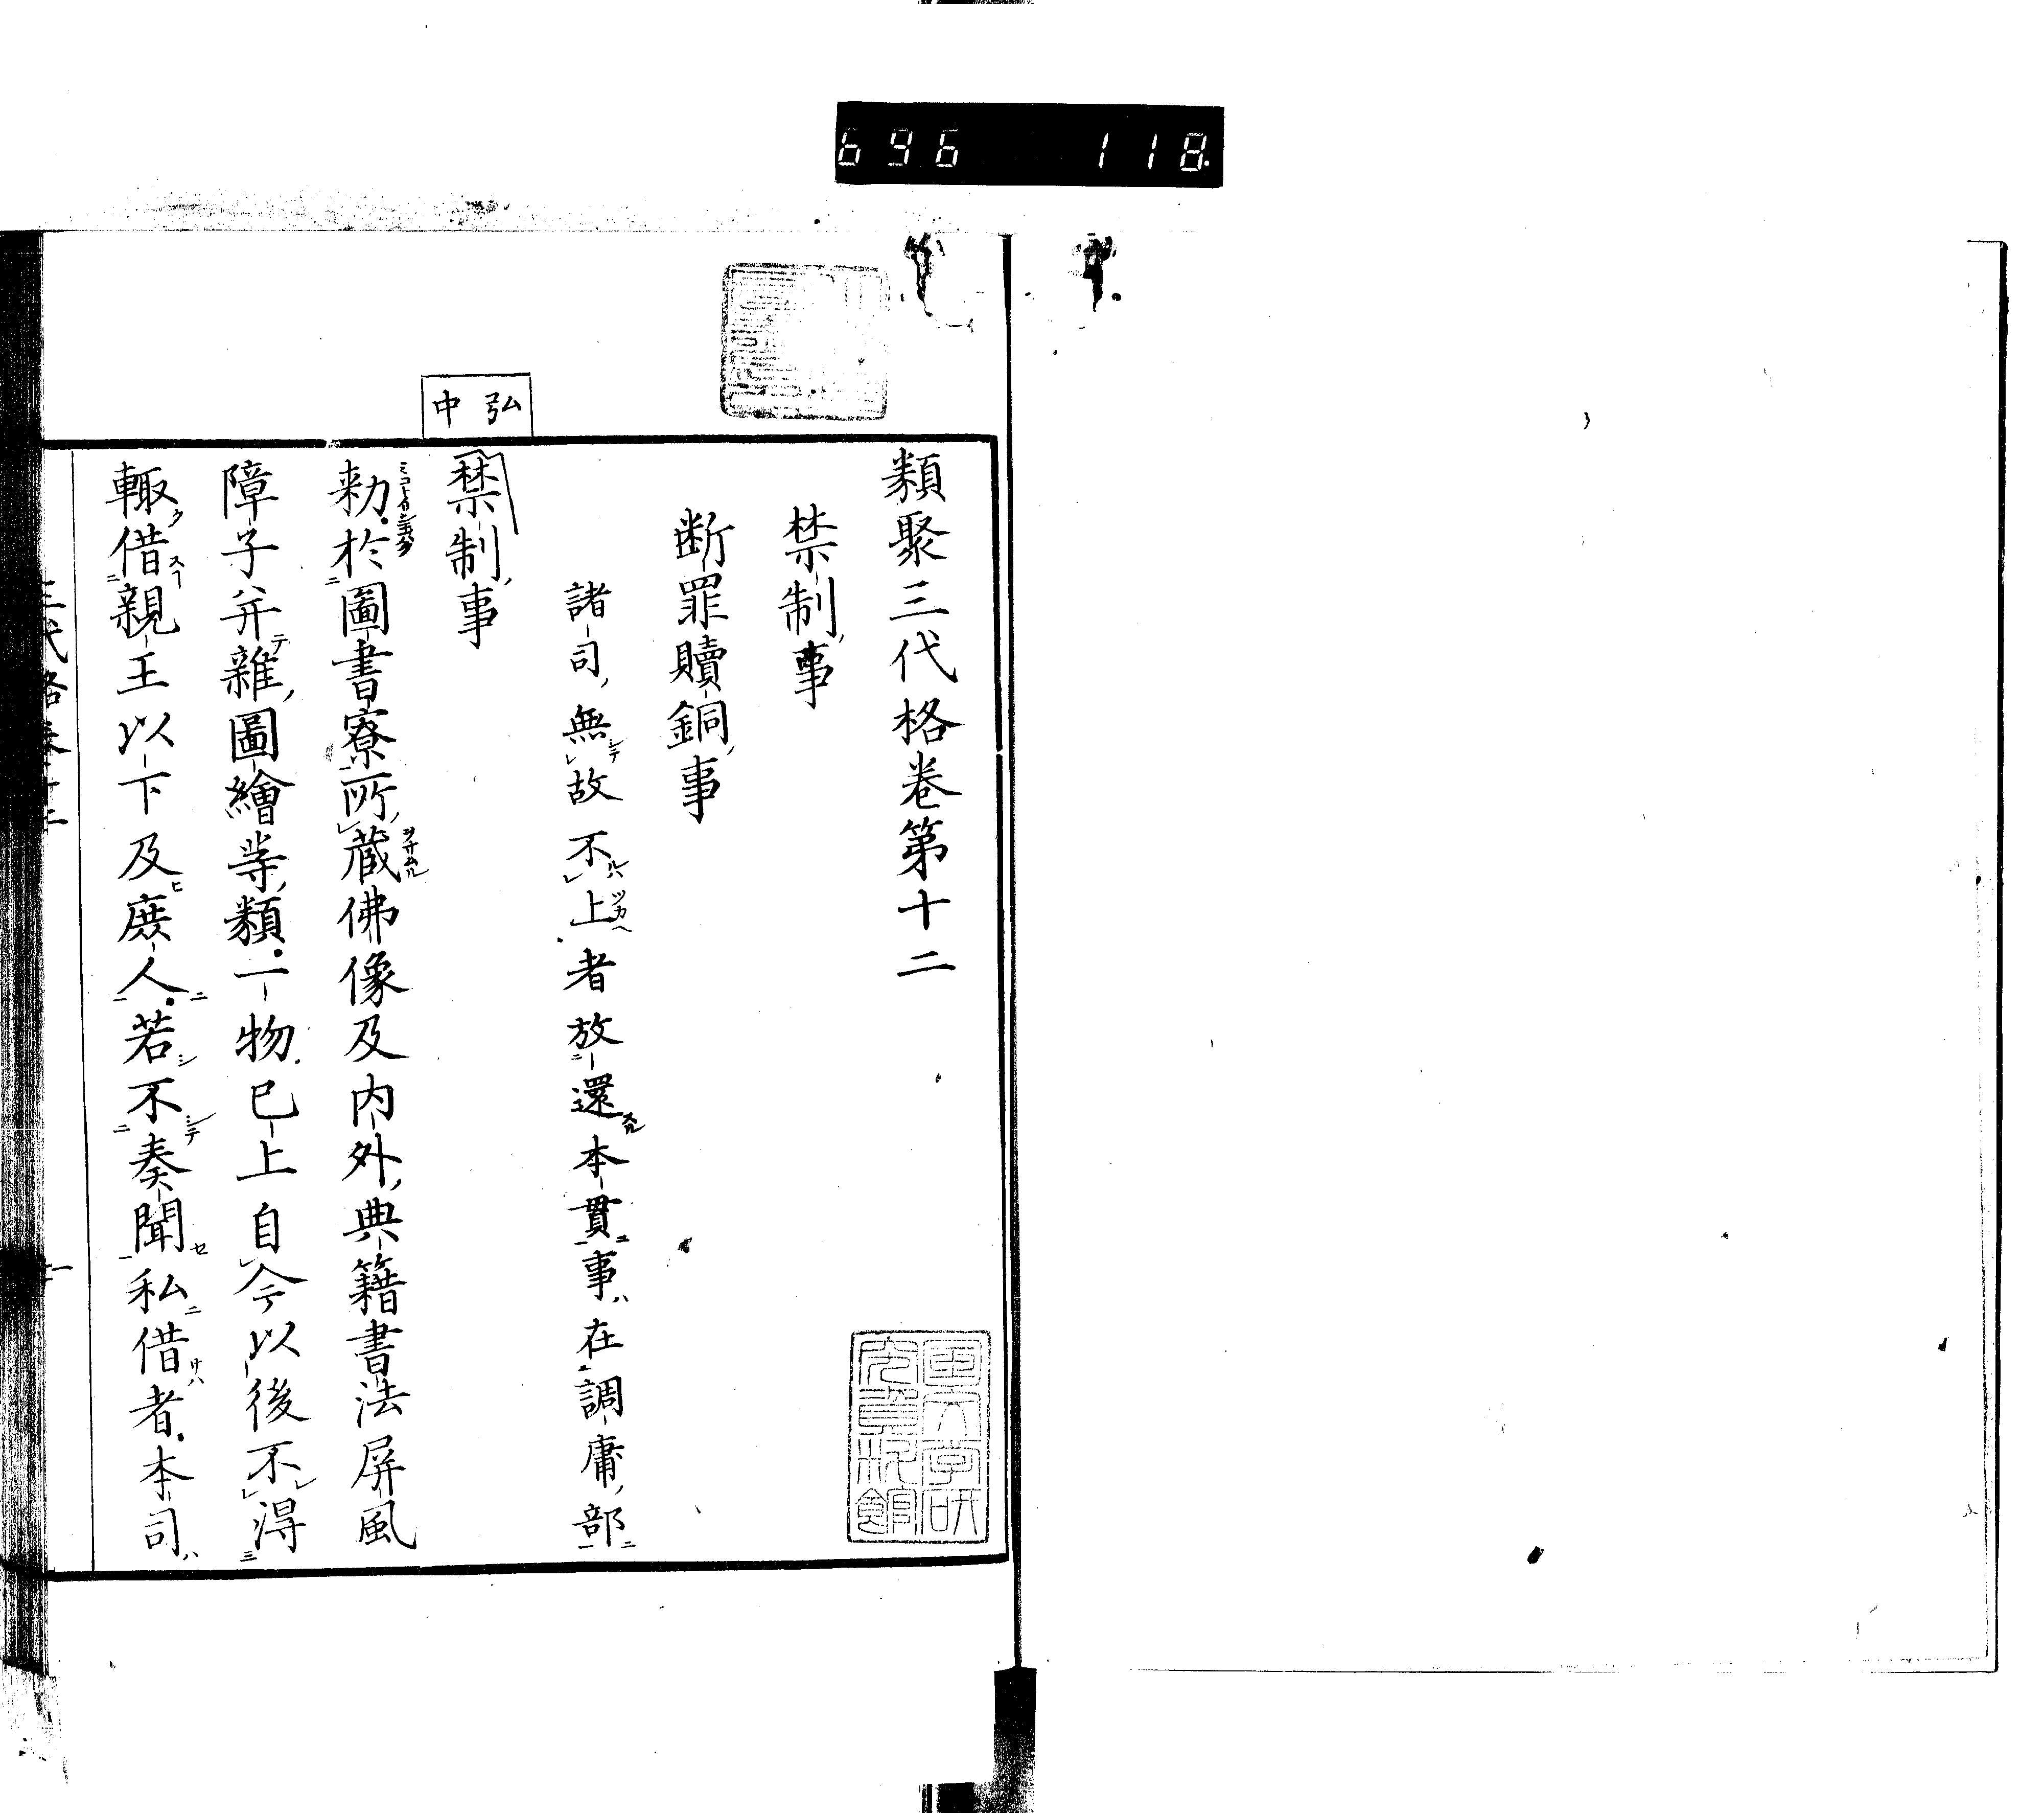 696 118
弘中
類聚三代格卷第十二
禁制事
断罪贖銅事
諸司無故不上者放還本貫事在調庸部
禁制事
勅於圖書寮所蔵佛像及内外典籍書法屏風
障子并雜圖繪等類一物已上自今以後不得
輙借親王以下及庶人若不奏聞私借者本司
国文学研究資料館